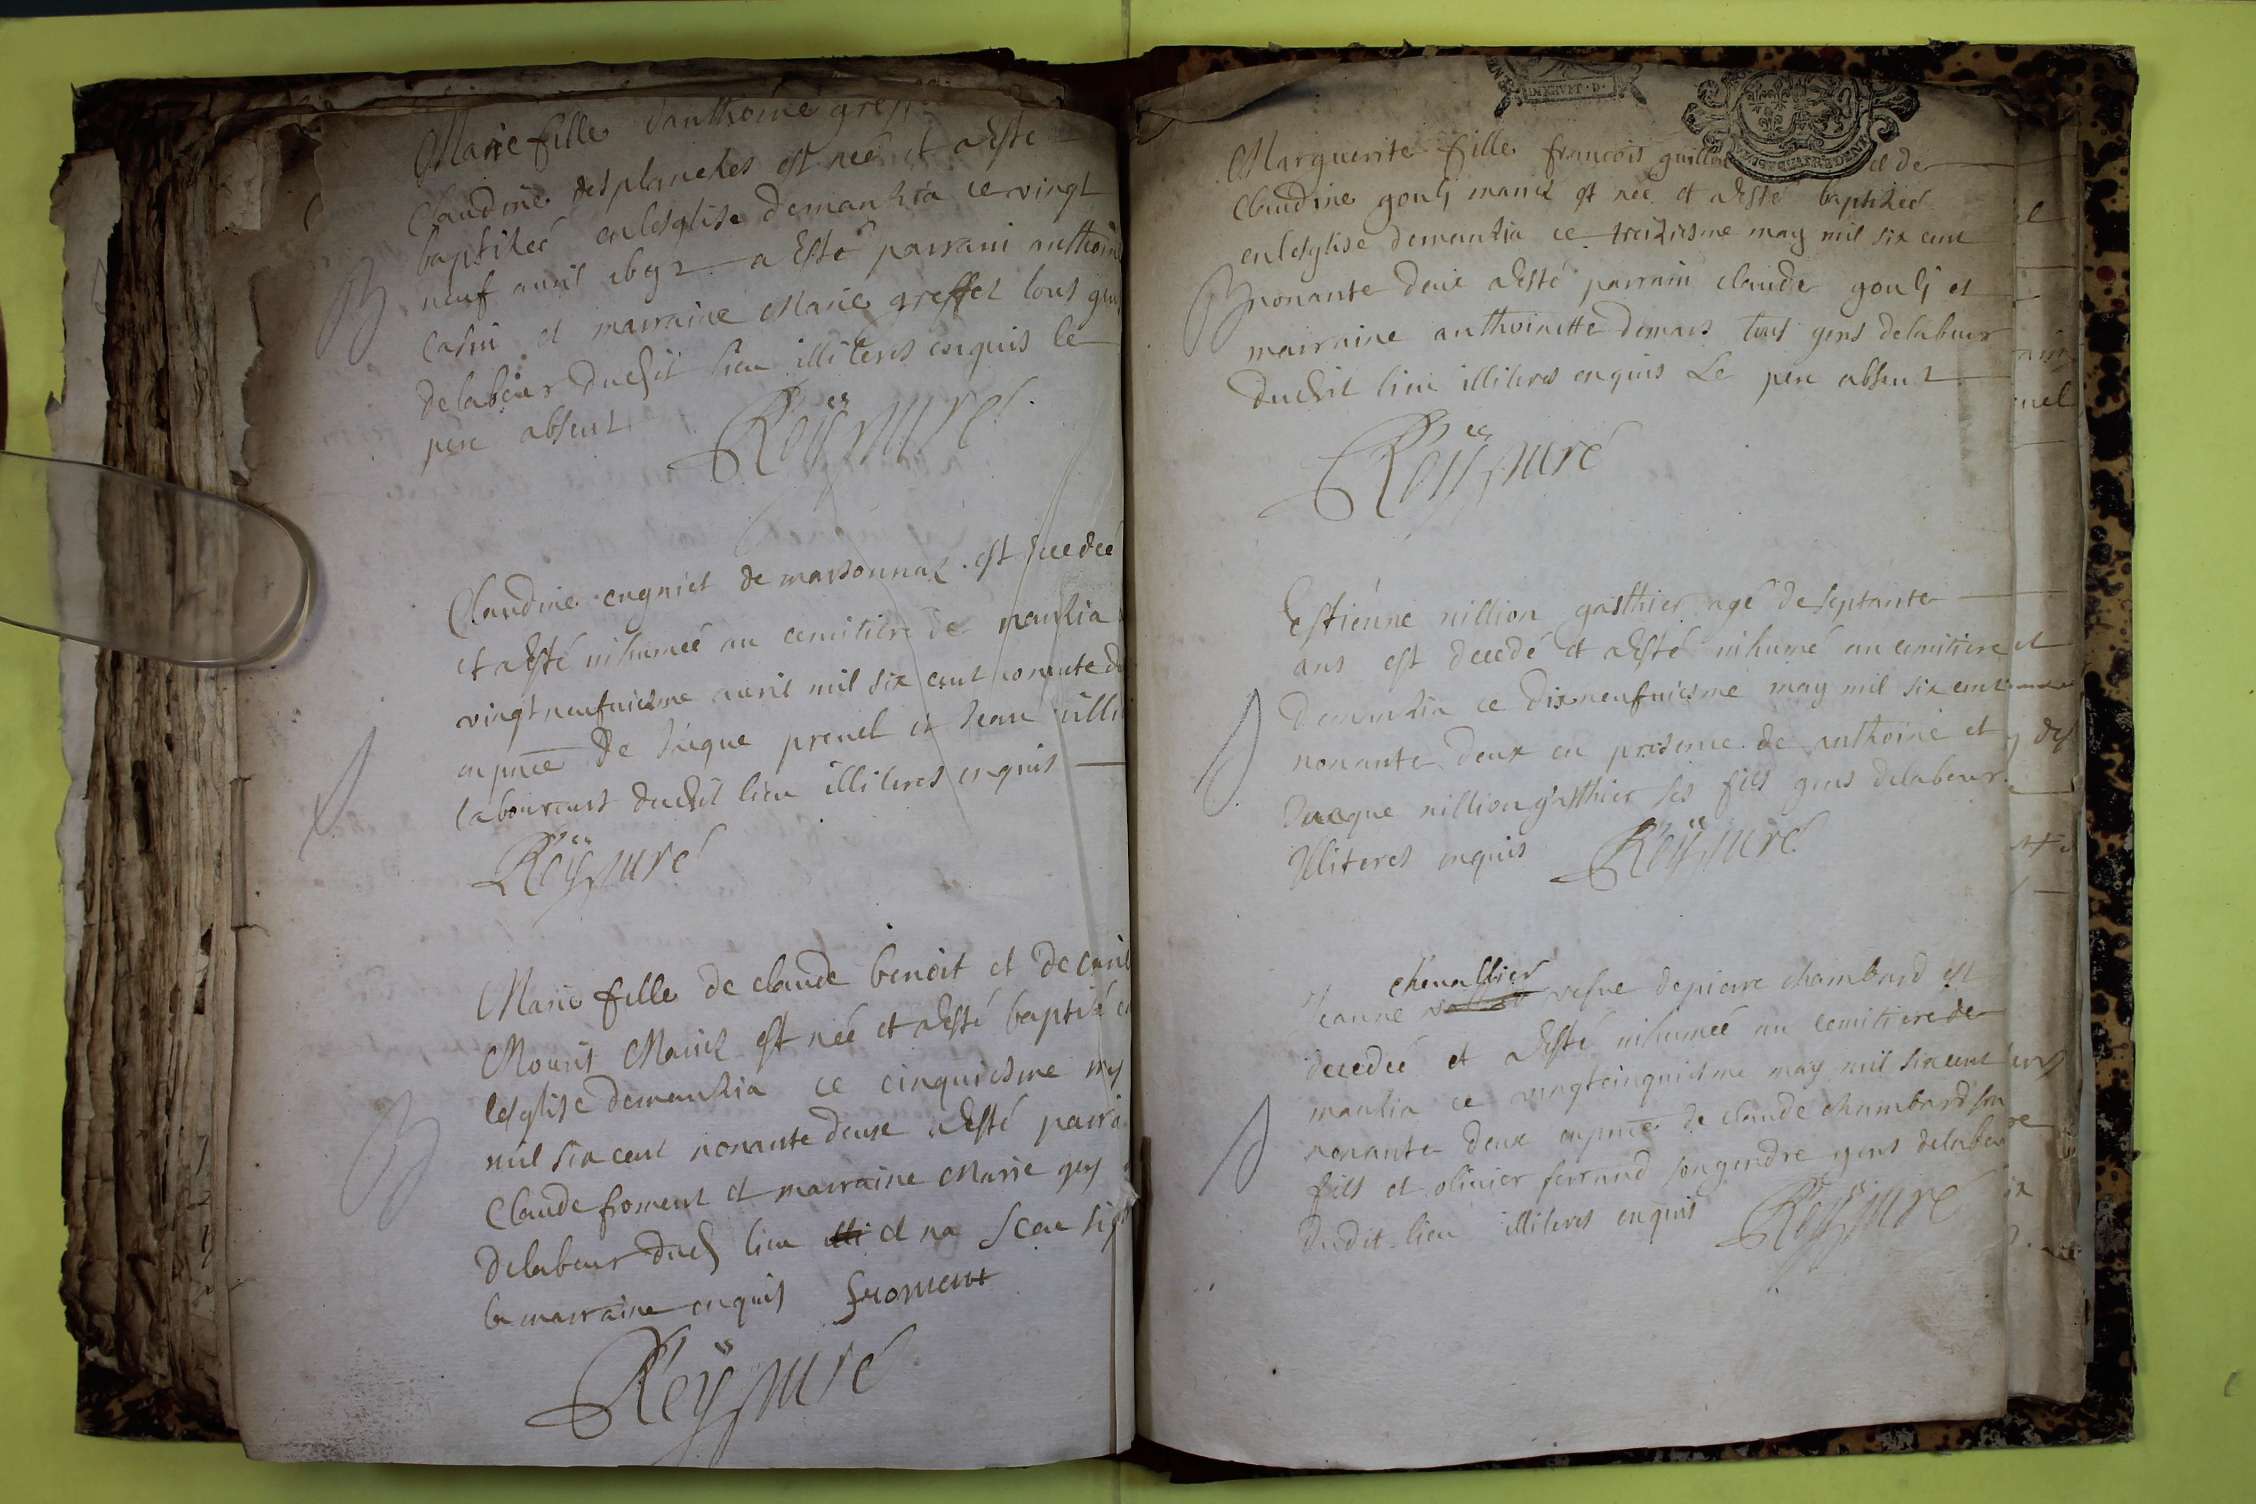 Marie fille d'anthoine gref
Claudine desplanches est née et a Esté
baptizeé en lesglise demanzia ce vingt
neuf avril 1692 a Esté parrain anthoine
Casin et marraine Marie greffet tous gens
delabeur dudit lieu illiteres enquis le
pere absent
Reÿ curé
Claudine cugniet de marsonnaz est decedeé
et a Esté inhumeé au cemitiere de manzia
vingt neufuiesme avril mil six cent nonante d
en pnce de Jacque prevel et Jean
laboureurs dudit lieu illiteres enquis
Reÿ curé
Marie fille de claude benoit et de
Mouris Mariez est née et a Esté baptizé en
lesglise demanzia ce cinquiesme may
mil six cent nonante deux a Esté parrain
Claude froment et marraine Marie
delabeur dud lieu et na sceu signer
la marraine enquis froment
Reÿ curé
Marguerite fille francois guillon et de
Claudine gouly mariez est neé et a Esté baptizeé
en lesglise demanzia ce treiziesme may mil six cent
nonante deux a Esté parrain claude gouly et
marraine anthoinette demars tous gens delabeur
dudit lieu illiteres enquis Le pere absent
Reÿ curé
Estiénne nillion gasthier agé de septante
ans est decedé et a Esté inhumé au cemitiere
demanzia ce dixneufuiesme may mil six cent
nonante deux en presence de anthoine et
Jacque nillion gasthier ses fils gens delabeur
Illiteres enquis Reÿ curé
chevallier
Jeanne vefve depierre chambard est
decedeé et a Esté inhumeé au cemitiere de
manzia ce vingtcinquiesme may mil six cent
nonante deux en pnce de claude chambard son
fils et olivier ferrand son gendre gens delabeur
dudit lieu illiteres enquis Reÿ curé